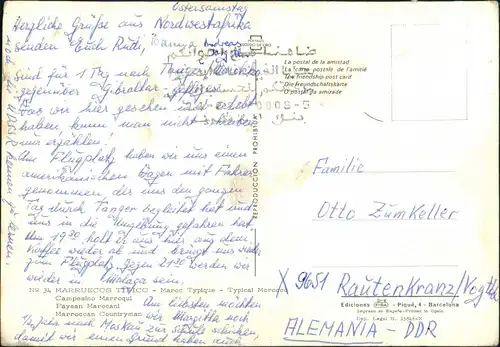 Ostersamstag
Herzliche Grüße aus Nordwestafrika
senden Euch Rudi,
Sind für 1 Tag nach Tanger Marokko
gegenüber Gibraltar geflogen
Was wir hier gesehen und erlebt
haben, kann man nicht schreiben
nur erzählen.
Am Flugplatz haben wir uns einen
amerikanischen Wagen mit Fahrer
genommen, der uns den ganzen
Tag durch Tanger begleitet hat und
uns in die Umgebung gefahren hat.
Um 19 30 holt er uns hier aus dem
Kaffee wieder ab und bringt uns wieder
zum Flugplatz. Gegen 21 werden wir
wieder in Malaga sein.
Am liebsten möchten
wir Margitta noch
1 Jahr nach Maskau zur Schule schicken,
damit wir einen Grund haben auch
noch die UdSSR kennen zu lernen.
Nº 34 MARRUECOS TIPICO - Maroc Typique - Typical Morocco
Campesino Marroquí
Paysan Marocani
Marroccan Countryman
REPRODUCCION PROHIBIDA
La postal de la amistad
La carte postale de l'amitié
The friendship post card
Die Freundschaftskarte
O postal da amizade
Familie
Otto Zumkeller
X 9651 Rautenkranz/Vogtl.
Ediciones - Piqué, 4 - Barcelona
Impreso en España-Printed in Spain
ALEMANIA - DDR